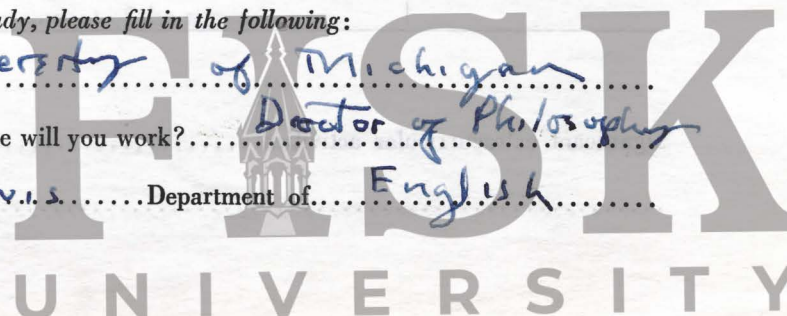 ady, please fill in the following:
ersity of Michigan
e will you work? Doctor of Philosophy
vis Department of English
FISK
UNIVERSITY